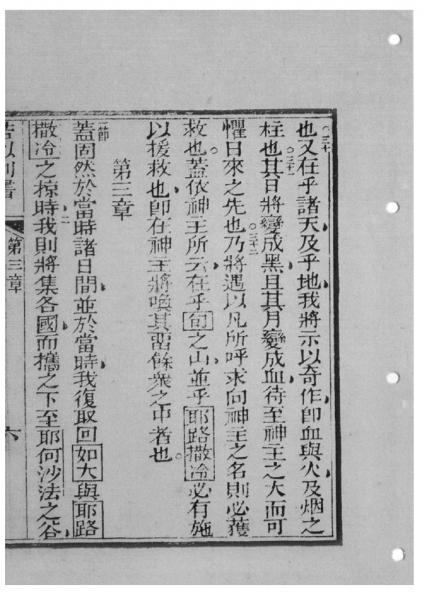 也。三十又在乎諸天、及乎地、我將示以奇作、即血與火及烟之
柱也。三十一其日將變成黑、且其月變成血、待至神主之大而可
懼日來之先也。三十二乃將遇以凡所呼求向神主之名則必獲
救也。蓋依神主所云、在乎旬之山、並乎耶路撒冷必有施
以援救也、即在神主將喚其畱餘衆之中者也。
第三章
一節蓋固然於當時諸日間、並於當時、我復取回如大與耶路
撒冷之掠時、二我則將集各國、而攜之下至耶何沙法之谷、
第三章
六